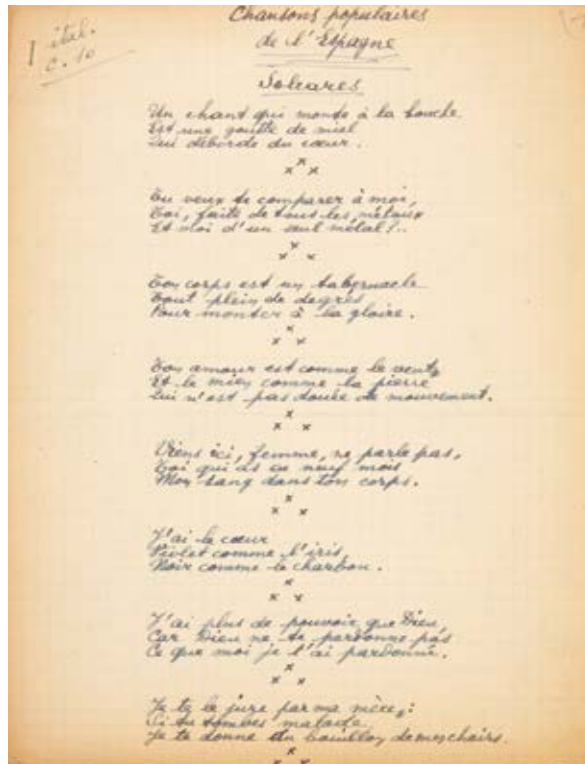 Chansons populaires
de l'Espagne
ital.
c. 10
Soleares
Un chant qui monte à la bouche
Est une goutte de miel
Qui déborde du cœur.
x x x
Tu veux te comparer à moi,
Toi, faite de tous les métaux
Et moi d'un seul métal!..
x x x
Ton corps est un tabernacle
Tout plein de degrés
Pour monter à la gloire.
x x x
Ton amour est comme le vent,
Et le mien comme la pierre
Qui n'est pas douée de mouvement.
x x x
Viens ici, femme, ne parle pas,
Toi qui as eu neuf mois
Mon sang dans ton corps.
x x x
J'ai le cœur
Violet comme l'iris,
Noir comme le charbon.
x x x
J'ai plus de pouvoir que Dieu,
Car Dieu ne te pardonne pas
Ce que moi je t'ai pardonné.
x x x
Je te le jure par ma mère,:
Si tu tombes malade
Je te donne du bouillon de mes chairs.
x x x